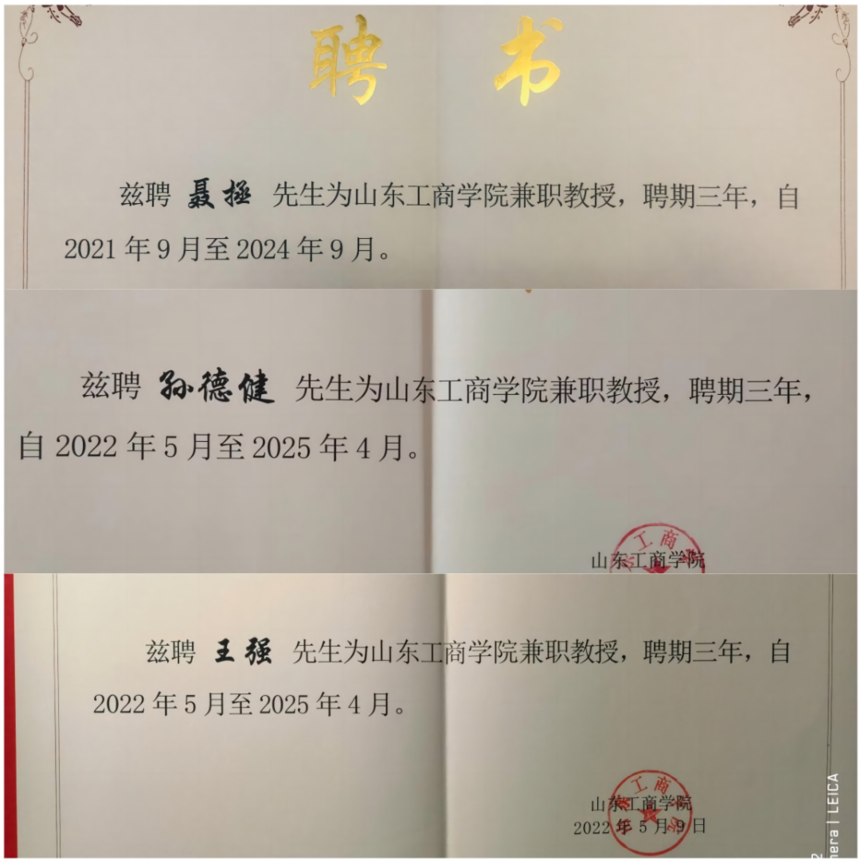 聘书
兹聘 聂拯 先生为山东工商学院兼职教授，聘期三年，自
2021年9月至2024年9月。
兹聘 孙德健 先生为山东工商学院兼职教授，聘期三年，
自2022年5月至2025年4月。
工商
山东工商学院
兹聘 王强 先生为山东工商学院兼职教授，聘期三年，自
2022年5月至2025年4月。
山东工商学院
山东工商学院
2022年5月9日
mera | LEICA